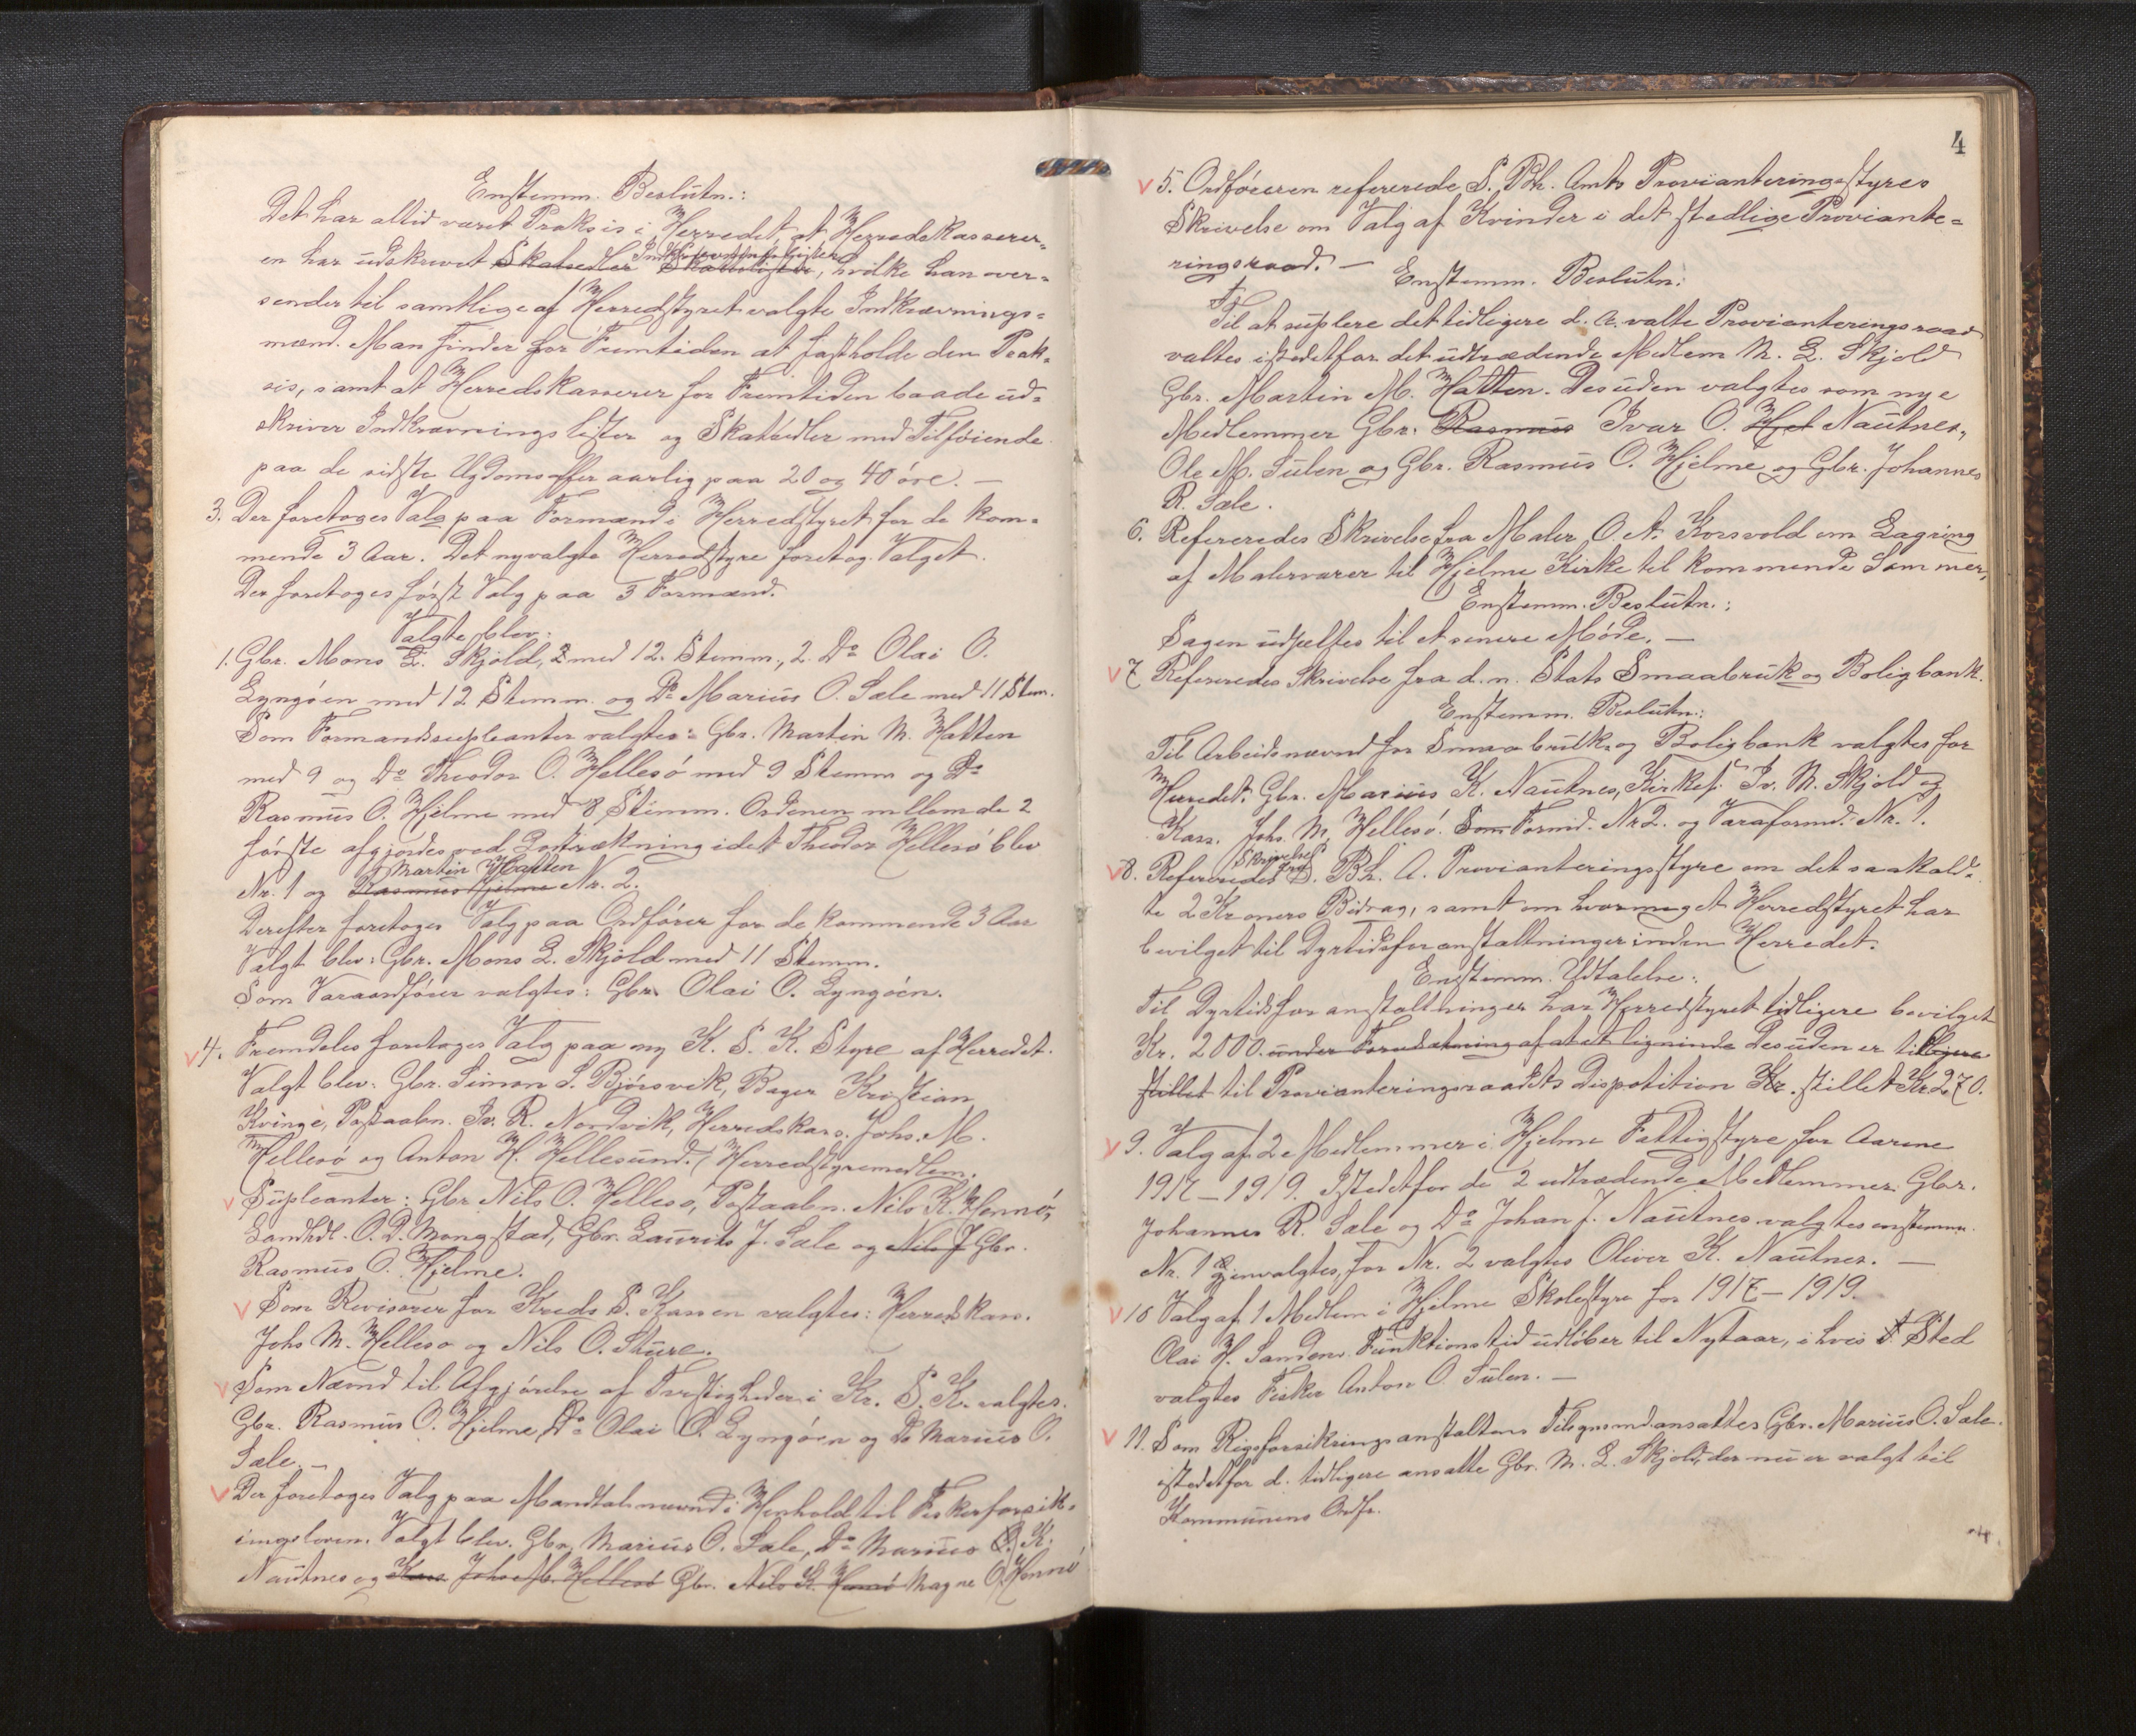 Enstemm. Beslutn.:
Det har altid været Praksis i Herredet at Herredskasserer=
en har udskrevet Skatsedler Skattelister Indkrævningslister, hvilke han over=
sender til samtlige af Herredstyret valgte Indkrævnings=
mænd. Man finder for Fremtiden at fastholde den Prak=
sis, samt at Herredskasserer for Fremtiden baade ud=
skriver Indkrævningslister og Skatsedler med Tilføiende
paa de sidste aarlig paa 20 og 40 øre. —
3. Der foretoges Valg paa Formænd i Herredstyret for de kom=
mende 3 Aar. Det nyvalgte Herredstyre foretog Valget.
Der foretoges først Valg paa 3 Formænd.
Valgte blev:
1. Gbr. Mons L. Skjold, med 12. Stemm., 2. Do Olai O.
Lyngøen med 12 Stemm. og Do Marius O. Sæle med 11 Stem.
Som Formandssupleanter valgtes: Gbr. Martin M. Hatten
med 9 og Do Theodor O. Hellesø med 9 Stemm og Do
Rasmus O. Hjelme med 8 Stemm. Ordenen mellem de 2
første afgjordes ved Lodtrækning idet Theodor Hellesø blev
Nr. 1 og Rasmus Hjelme Martin Hatten Nr. 2.
Derefter foretoges Valg paa Ordfører for de kommende 3 Aar
Valgt blev: Gbr. Mons L. Skjold med 11 Stemm.
Som Varaordfører valgtes: Gbr. Olai O. Lyngøen.
4. Fremdeles foretoges Valg paa ny K. S. K. Styre af Herredet.
Valgt blev: Gbr. Simon S. Bjørsvik, Bager Kristian
Kvinge, Postaabn. Iv. R. Nordvik, Herredskass. Johs. M.
Hellesø og Anton H. Hellesund. (Herredstyremedlem.
Supleanter: Gbr. Nils O. Hellesø, Postaabn. Nils K. Hennø,
Landhdl. O. D. Mongstad, Gbr. Laurits J. Sæle og Nils J Gbr.
Rasmus O. Hjelme.
Som Revisorer for Kreds S. Kassen valgtes: Herredskass.
Johs M. Hellesø og Nils O. Sture.
Som Nævnd til Afgjørelse af Tvistigheder i Kr. S. K. valgtes.
Gbr. Rasmus O. Hjelme, Do Olai O. Lyngøen og Do Marius O.
Sæle. —
Der foretoges Valg paa Mandtalsnævnd i Henhold til Fiskerforsik=
ringsloven. Valgt blev. Gbr. Marius O. Sæle, Do Marius K.
Nautnes og Kass Johs M. Hellesø Gbr. Nils K. Hennø Magne O. Hennø
4
5. Ordføreren refererede S. Bh. Amts Provianteringsstyres
Skrivelse om Valg af Kvinder i det stedlige Proviante=
ringsraad. —
Enstemm. Beslutn:
Til at suplere det tidligere d. A. valte Provianteringsraad
valtes istedetfor det udtrædende Medlem M. L. Skjold
Gbr. Martin M. Hatten. Desuden valgtes som nye
Medlemmer Gbr. Rasmus Ivar O. Hjel Nautnes,
Ole M. Sulen og Gbr. Rasmus O. Hjelme og Gbr. Johannes
R. Sæle.
6. Refereredes Skrivelse fra Maler O. A. Korsvold om Lagring
af Malervarer til Hjelme Kirke til kommende Sommer,
Enstemm. Beslutn.:
Sagen udsettes til et senere Møde. —
7. Refereredes Skrivelse fra d. n. Stats Smaabruk og Boligbank.
Enstemm. Beslutn.:
Til Arbeidsnævnd for Smaabruk- og Boligbank valgtes for
Herredet. Gbr. Marius K. Nautnes, Kirkes. Iv. M. Skjold og
Kass. Johs. M. Hellesø. Som Formd. Nr 2. og Varaformd. Nr. 1.
8. Refereredes Skrivelse fra S. Bh. A. Provianteringsstyre om det saakald=
te 2 Kroners Bidrag, samt om hvormeget Herredstyret har
bevilget til Dyrtidsforanstaltninger inden Herredet.
Enstemm. Udtalelse:
Til Dyrtidsforanstaltninger har Herredstyret tidligere bevilget
Kr. 2000. under Forudsætning af at et lignende Desuden er tidligere
stillet til Provianteringsraadets Dispotition Kr. stillet Kr. 270.
9. Valg af 2 Medlemmer i Hjelme Fattigstyre for Aarene
1917 – 1919. Istedetfor de 2 udtrædende Medlemmer Gbr.
Johannes R. Sæle og Do Johan J. Nautnes valgtes enstemm.
Nr. 1 gjenvalgtes, for Nr. 2 valgtes Oliver K. Nautnes. —
10 Valg af 1 Medlem i Hjelme Skolestyre for 1917 – 1919.
Olai H. Sandens Funktionstid udløber til Nytaar, i hvis Sted
valgtes Fisker Anton O. Sulen. —
11. Som Rigsforsikringsanstaltens Tilsynsmd. ansattes Gbr. Marius O. Sæle.
istedetfor d. tidligere ansatte Gbr. M. L. Skjold, der nu er valgt til
Kommunens Ordfr.